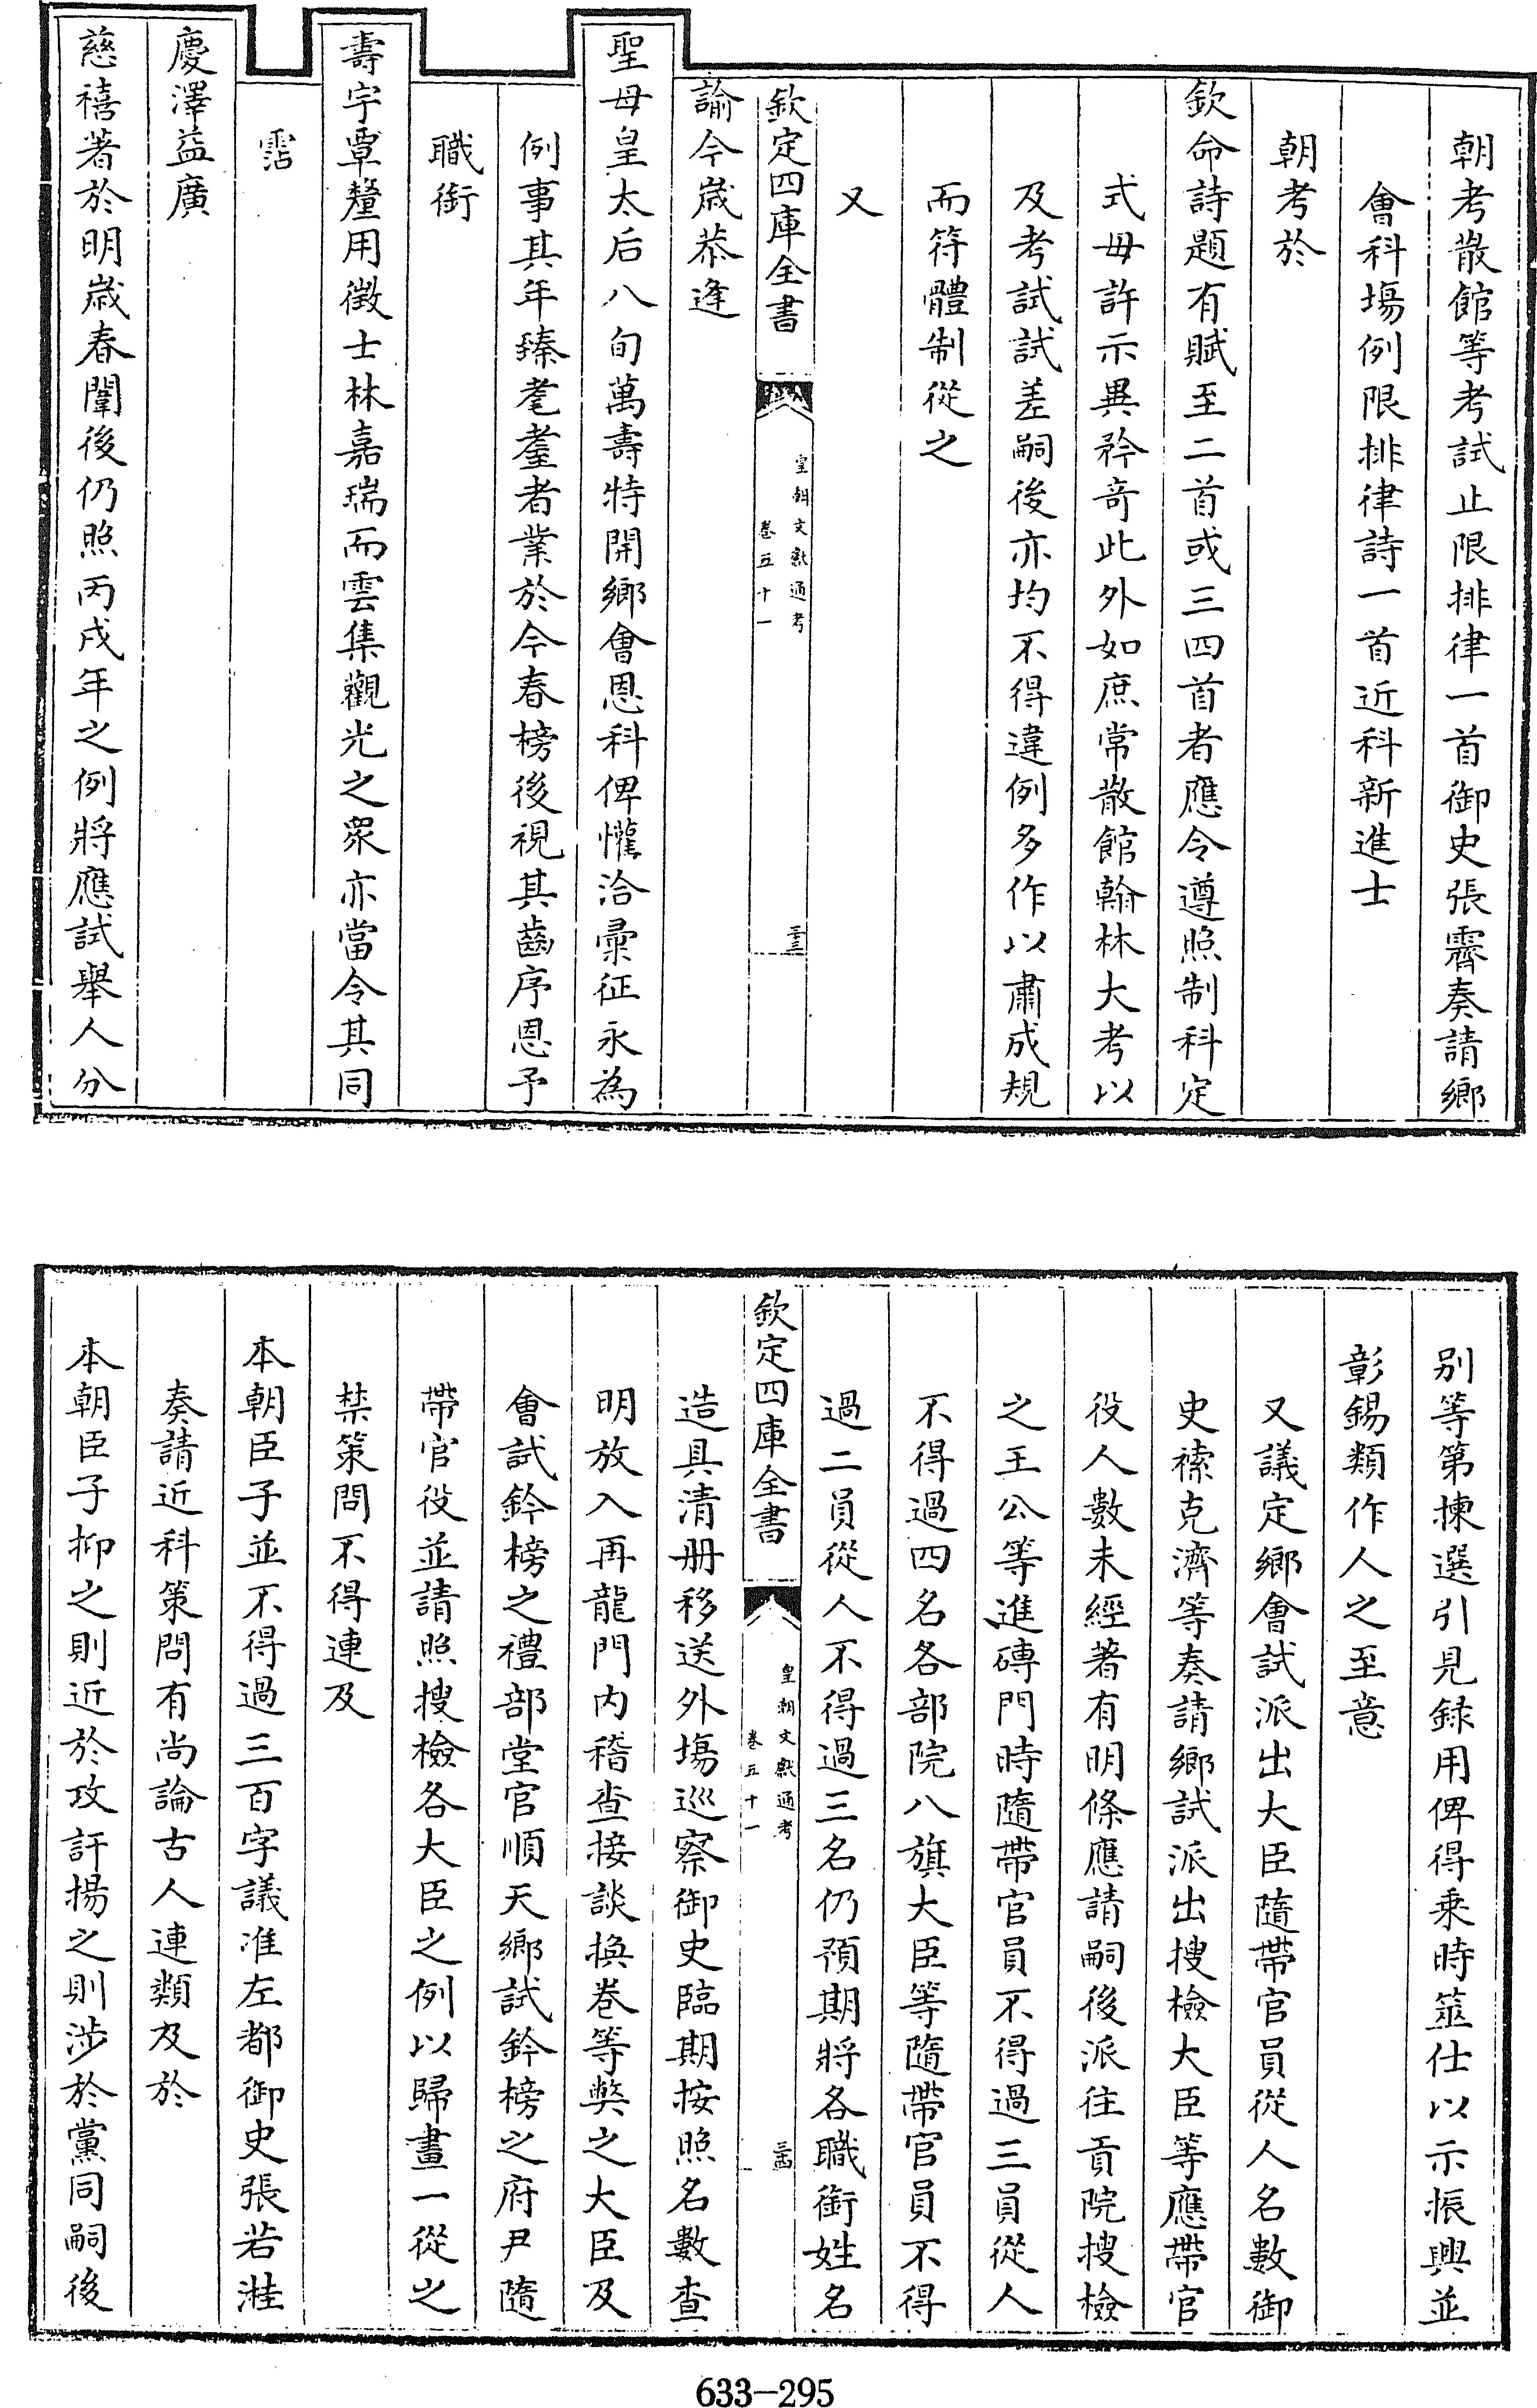 朝考散館等考試止限排律一首御史張霽奏請鄉
會科場例限排律詩一首近科新進士
朝考於
欽命詩題有賦至二首或三四首者應令遵照制科定
式毋許示異矜奇此外如庶常散館翰林大考以
及考試試差嗣後亦均不得違例多作以肅成規
而符體制從之
又
欽定四庫全書
皇朝文獻通考
卷五十一
三十三
諭今歲恭逢
聖母皇太后八旬萬壽特開鄉會恩科俾懽洽彙征永為
例事其年臻耄耋者業於今春榜後視其齒序恩予
職銜
壽宇覃釐用徵士林嘉瑞而雲集觀光之衆亦當令其同
霑
慶澤益廣
慈禧著於明歲春闈後仍照丙戌年之例將應試舉人分
别等第揀選引見録用俾得乘時筮仕以示振興並
彰錫類作人之至意
又議定鄉會試派出大臣隨帶官員從人名數御
史禚克濟等奏請鄉試派出搜檢大臣等應帶官
役人數未經著有明條應請嗣後派往貢院搜檢
之王公等進磚門時隨帶官員不得過三員從人
不得過四名各部院八旗大臣等隨帶官員不得
過二員從人不得過三名仍預期將各職銜姓名
欽定四庫全書
皇朝文獻通考
卷五十一
三十四
造具清册移送外場巡察御史臨期按照名數查
明放入再龍門內稽查接談換卷等弊之大臣及
會試鈐榜之禮部堂官順天鄉試鈐榜之府尹隨
帶官役並請照搜檢各大臣之例以歸畫一從之
禁策問不得連及
本朝臣子並不得過三百字議准左都御史張若溎
奏請近科策問有尚論古人連類及於
本朝臣子抑之則近於攻訐揚之則涉於黨同嗣後
633-295